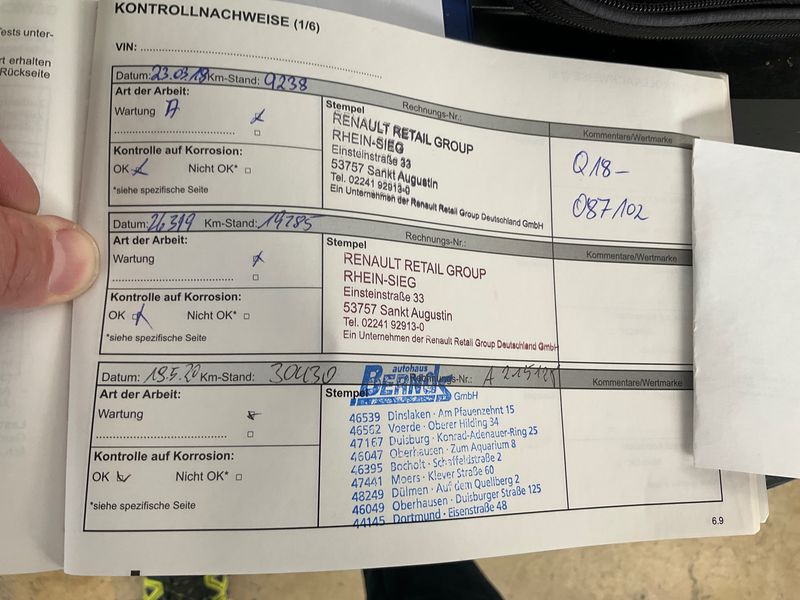 ests unter-
rt erhalten
Rückseite
KONTROLLNACHWEISE (1/6)
VIN:
Datum: 23.03.18 Km-Stand: 9238
Art der Arbeit:
Wartung A
Kontrolle auf Korrosion:
OK Nicht OK*
*siehe spezifische Seite
Stempel
Rechnungs-Nr.:
RENAULT RETAIL GROUP
RHEIN-SIEG
Einsteinstraße 33
53757 Sankt Augustin
Tel. 02241 92913-0
Ein Unternehmen der Renault Retail Group Deutschland GmbH
Kommentare/Wertmarke
Q18-
087102
Datum: Km-Stand:
Art der Arbeit:
Wartung
Kontrolle auf Korrosion:
OK Nicht OK*
*siehe spezifische Seite
Stempel
Rechnungs-Nr.:
RENAULT RETAIL GROUP
RHEIN-SIEG
Einsteinstraße 33
53757 Sankt Augustin
Tel. 02241 92913-0
Ein Unternehmen der Renault Retail Group Deutschland GmbH
Kommentare/Wertmarke
Datum: 19.5.20 Km-Stand: 30430
Art der Arbeit:
Wartung
Kontrolle auf Korrosion:
OK Nicht OK*
*siehe spezifische Seite
Stempel
Rechnungs-Nr.:
autohaus
BERNDS
GmbH
46539 Dinslaken · Am Pfauenzehnt 15
46562 Voerde · Oberer Hilding 34
47167 Duisburg · Konrad-Adenauer-Ring 25
46047 Oberhausen · Zum Aquarium 8
46395 Bocholt · Schaffeldstraße 2
47441 Moers · Klever Straße 60
48249 Dülmen · Auf dem Quellberg 2
46049 Oberhausen · Duisburger Straße 125
44145 Dortmund · Eisenstraße 48
Kommentare/Wertmarke
6.9